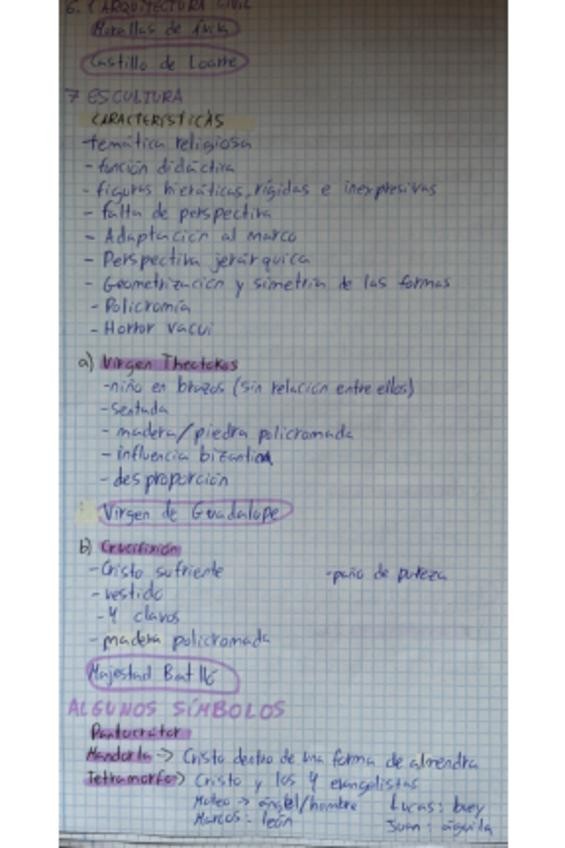 6. 1 ARQUITECTURA CIVIL
Murallas de Ávila
Castillo de Loarre
7 ESCULTURA
CARACTERÍSTICAS
-temática religiosa
- función didáctica
- figuras hieráticas, rígidas e inexpresivas
- falta de perspectiva
- Adaptación al marco
- Perspectiva jerárquica
- Geometrización y simetría de las formas
- Policromía
- Horror vacui
a) Virgen Theotokos
-niño en brazos (sin relación entre ellos)
- sentada
- madera/piedra policromada
- influencia bizantina
- desproporción
Virgen de Guadalupe
b) Crucifixión
- Cristo sufriente -paño de pureza
- vestido
- 4 clavos
- madera policromada
Majestad Batlló
ALGUNOS SÍMBOLOS
Pantocrátor
Mandorla -> Cristo dentro de una forma de almendra
Tetramorfos -> Cristo y los 4 evangelistas
Mateo -> ángel/hombre Lucas: buey
Marcos: león Juan: águila